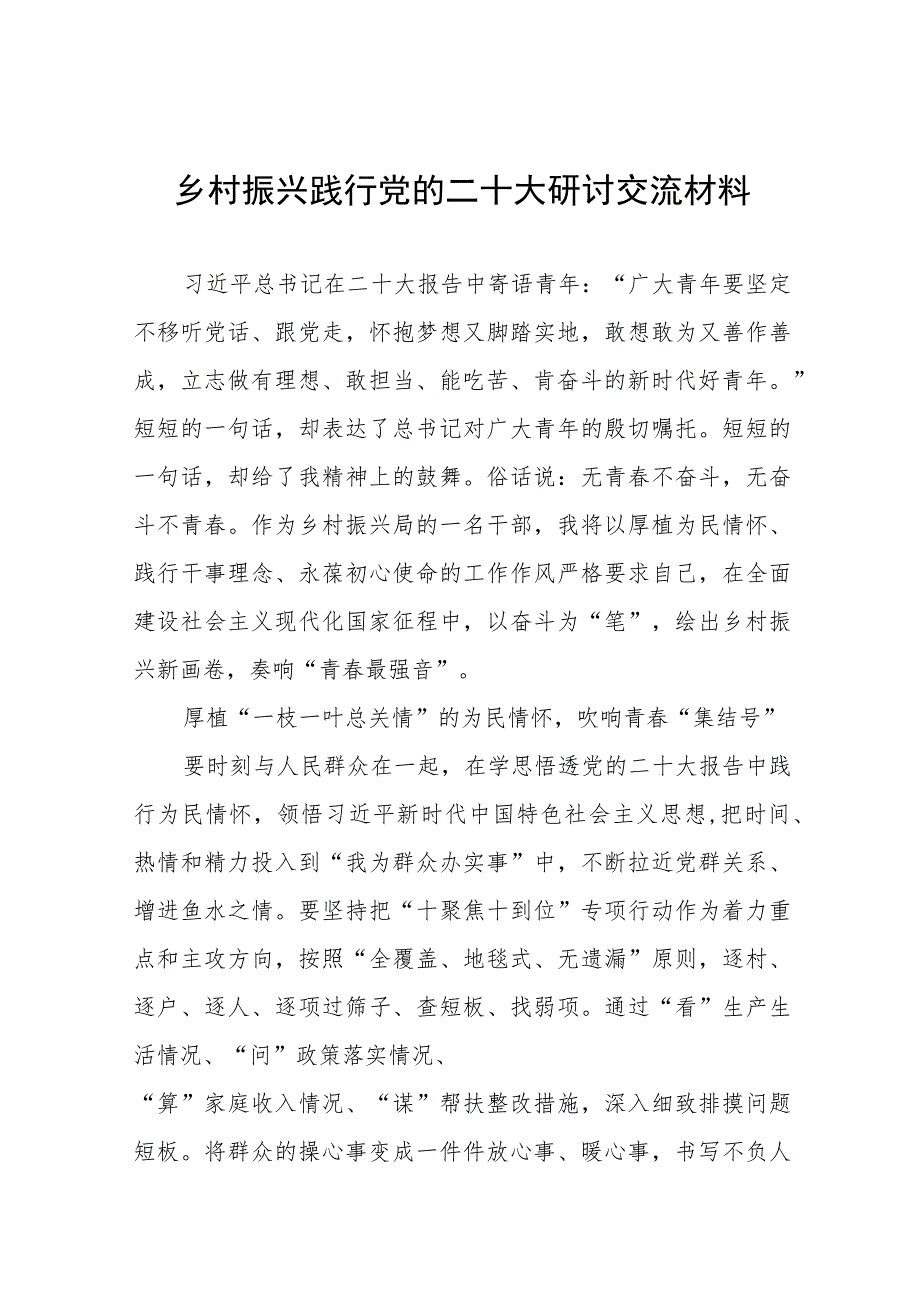 乡村振兴践行党的二十大研讨交流材料
习近平总书记在二十大报告中寄语青年：“广大青年要坚定
不移听党话、跟党走，怀抱梦想又脚踏实地，敢想敢为又善作善
成，立志做有理想、敢担当、能吃苦、肯奋斗的新时代好青年。”
短短的一句话，却表达了总书记对广大青年的殷切嘱托。短短的
一句话，却给了我精神上的鼓舞。俗话说：无青春不奋斗，无奋
斗不青春。作为乡村振兴局的一名干部，我将以厚植为民情怀、
践行干事理念、永葆初心使命的工作作风严格要求自己，在全面
建设社会主义现代化国家征程中，以奋斗为“笔”，绘出乡村振
兴新画卷，奏响“青春最强音”。
厚植“一枝一叶总关情”的为民情怀，吹响青春“集结号”
要时刻与人民群众在一起，在学思悟透党的二十大报告中践
行为民情怀，领悟习近平新时代中国特色社会主义思想,把时间、
热情和精力投入到“我为群众办实事”中，不断拉近党群关系、
增进鱼水之情。要坚持把“十聚焦十到位”专项行动作为着力重
点和主攻方向，按照“全覆盖、地毯式、无遗漏”原则，逐村、
逐户、逐人、逐项过筛子、查短板、找弱项。通过“看”生产生
活情况、“问”政策落实情况、
“算”家庭收入情况、“谋”帮扶整改措施，深入细致排摸问题
短板。将群众的操心事变成一件件放心事、暖心事，书写不负人